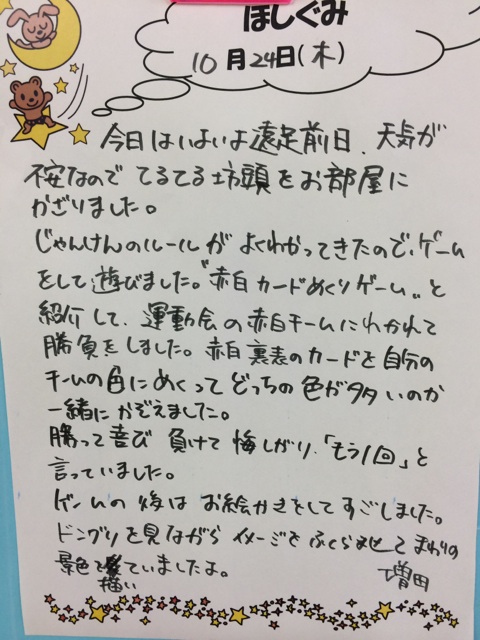 ほしぐみ
10月24日(木)
今日はいよいよ遠足前日、天気が
不安なのでてるてる坊頭をお部屋に
かざりました。
じゃんけんのルールがよくわかってきたので、ゲーム
をして遊びました。〝赤白カードめくりゲーム〟と
紹介して、運動会の赤白チームにわかれて
勝負をしました。赤白裏表のカードを自分の
チームの色にめくってどっちの色が多いのか
一緒にかぞえました。
勝って喜び負けて悔しがり、「もう1回」と
言っていました。
ゲームの後はお絵かきをしてすごしました。
ドングリを見ながらイメージをふくらませてまわりの
景色を描いていましたよ。
増田